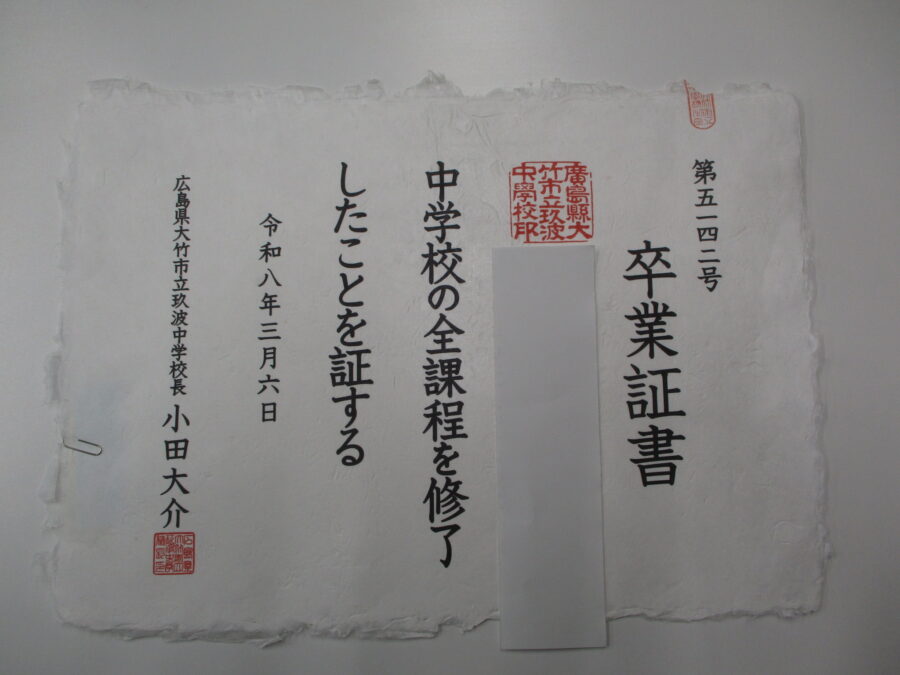 第五一四二号
卒業証書
廣島縣大
竹市立玖波
中學校印
中学校の全課程を修了
したことを証する
令和八年三月六日
広島県大竹市立玖波中学校長 小田大介